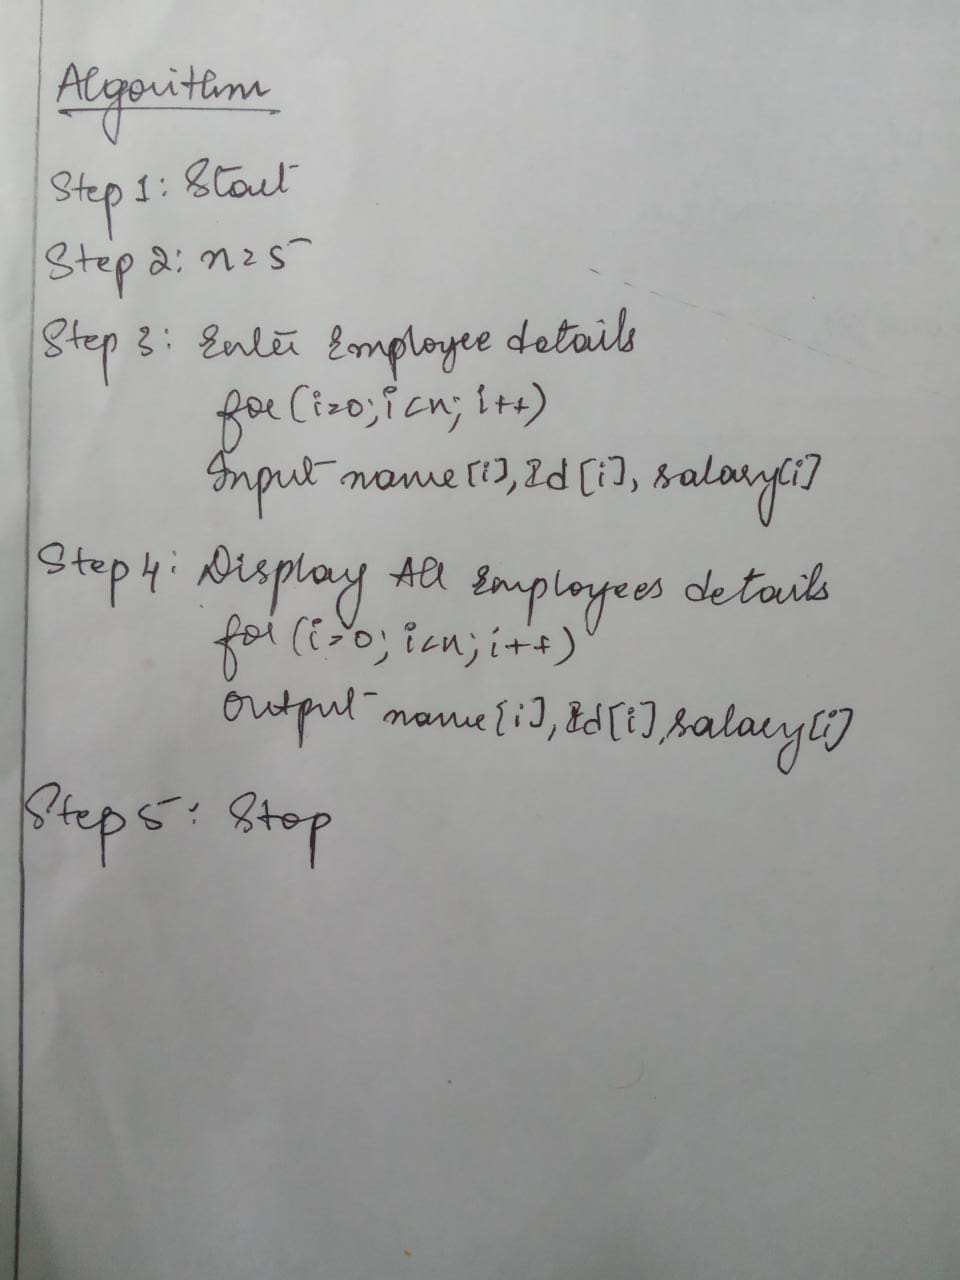 Algorithm
Step 1: Start
Step 2: n=5
Step 3: Enter Employee details
for (i=0; i<n; i++)
Input name[i], Id[i], salary[i]
Step 4: Display All Employees details
for (i=0; i<n; i++)
Output name[i], Id[i], salary[i]
Step 5: Stop